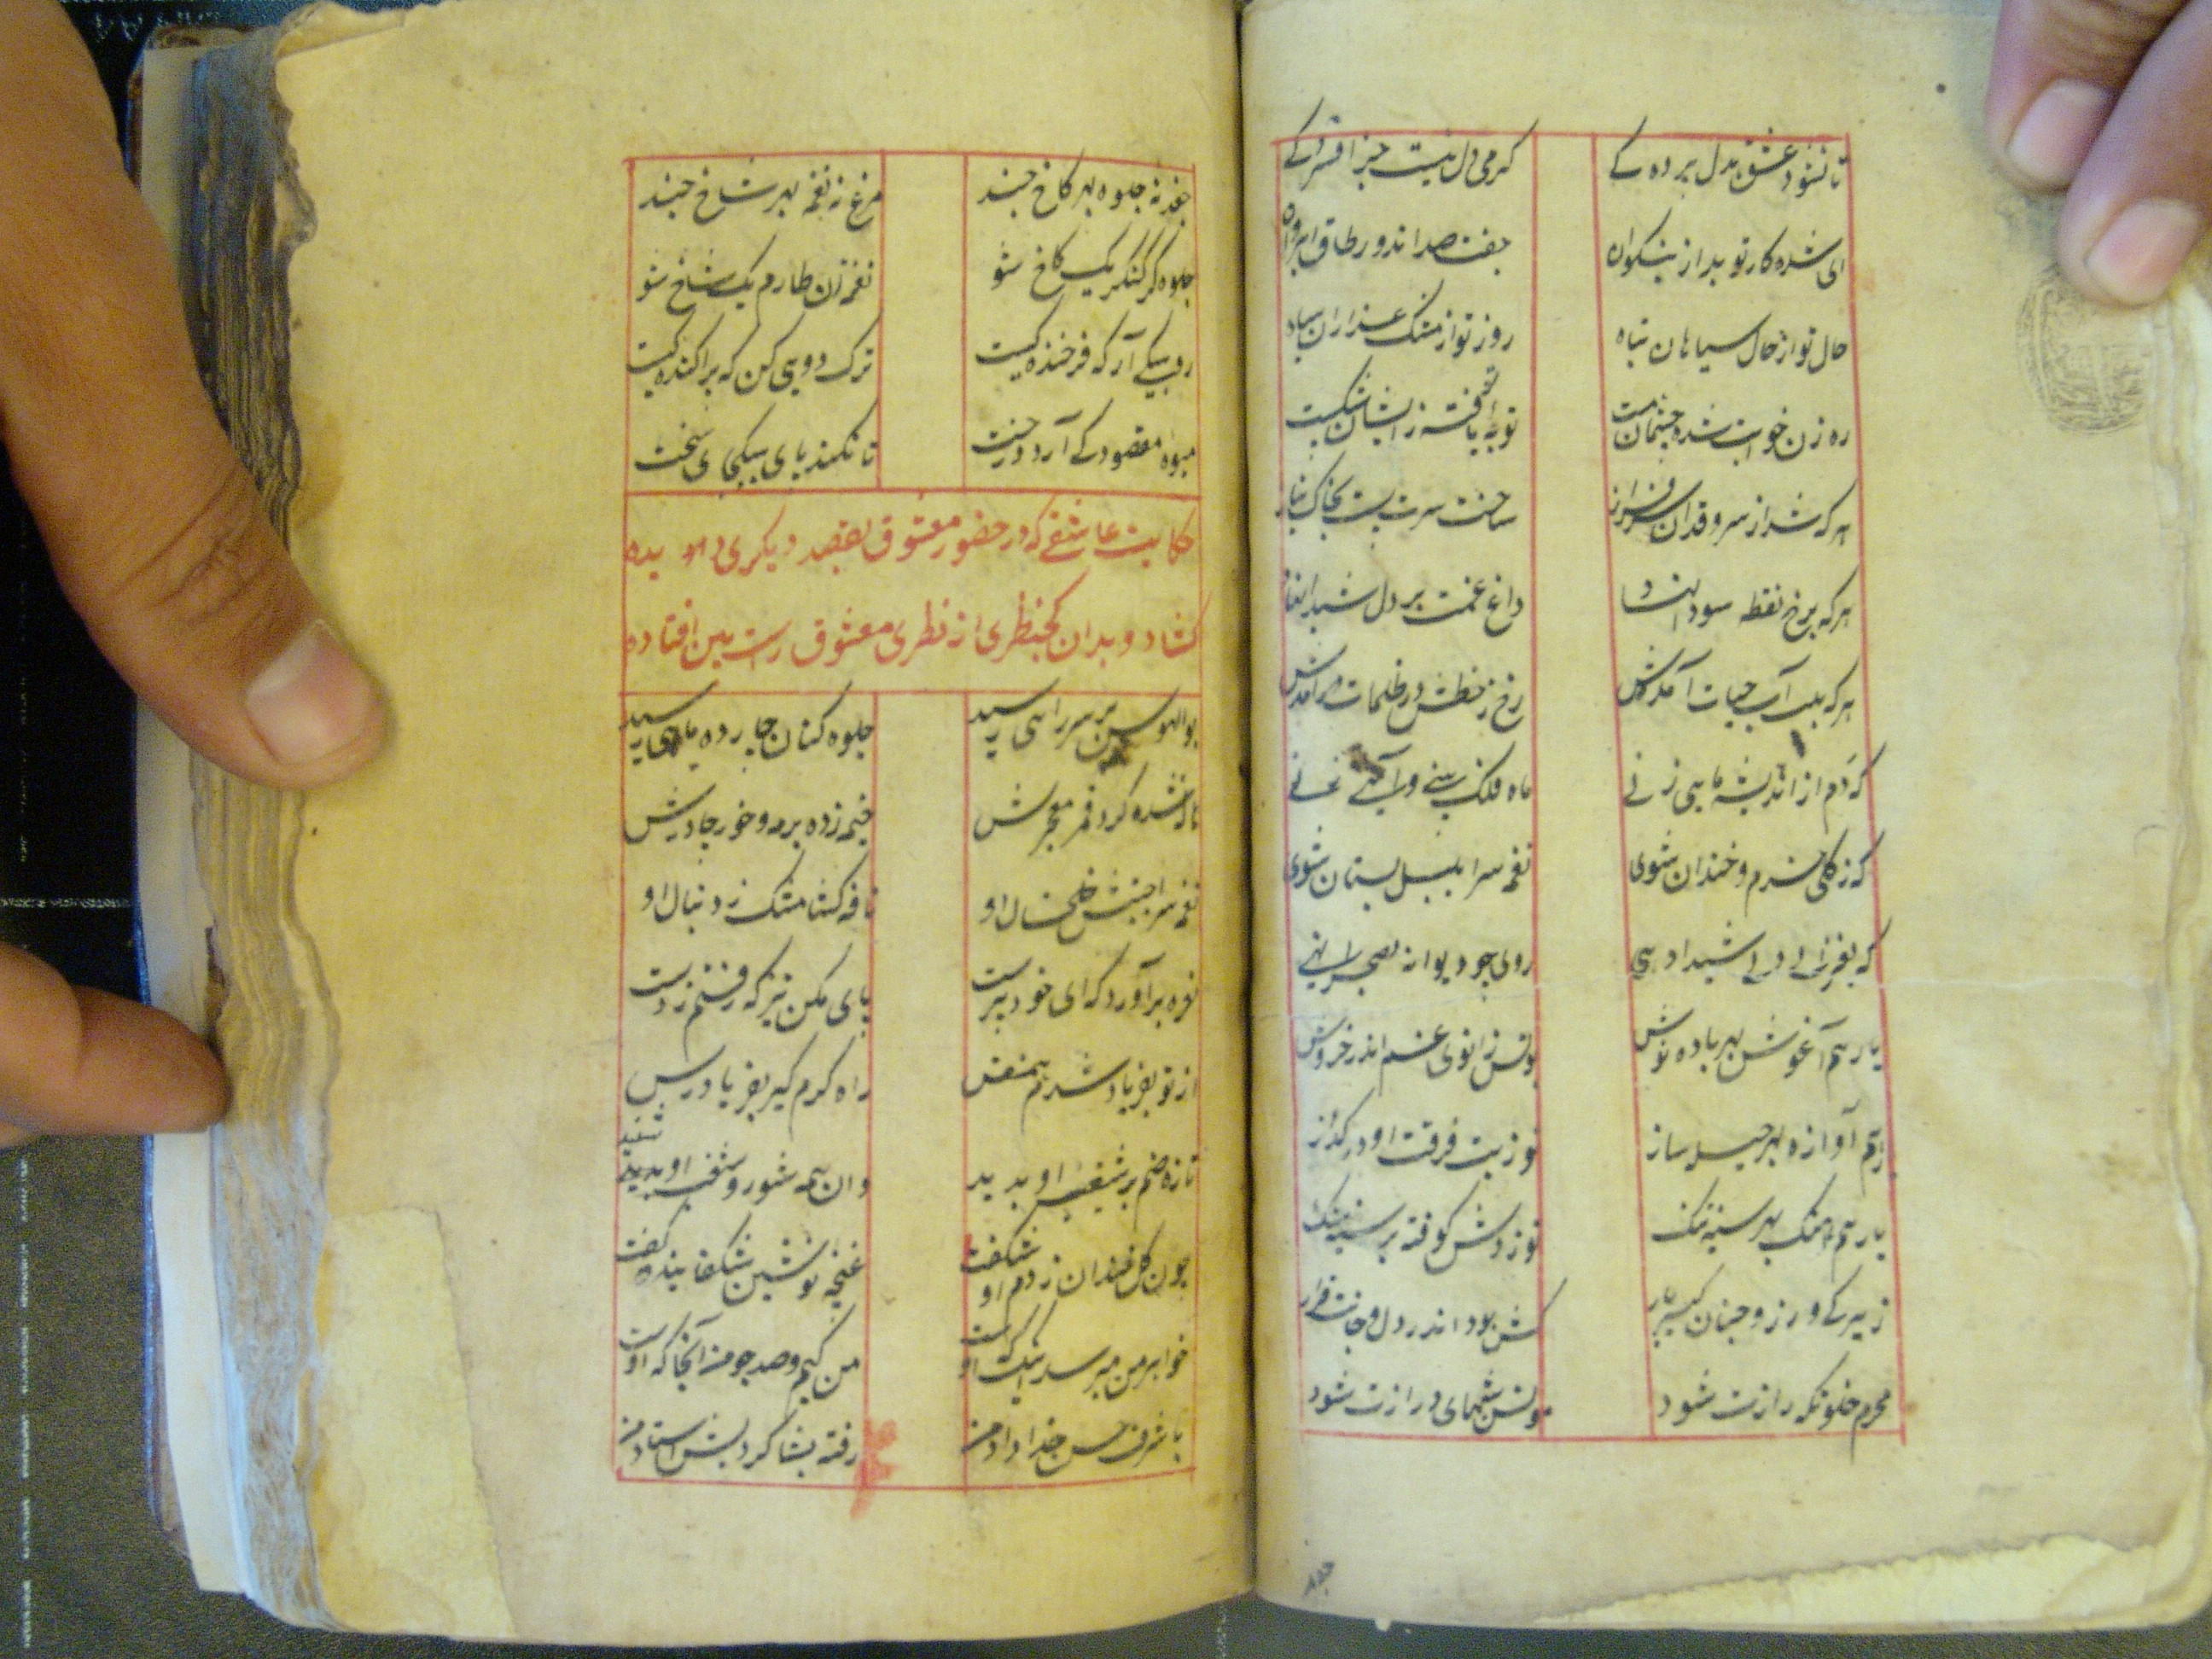 تا نشود عشق بدل برده کے    کرمی دل نیست جز افسردکے
ای شده کار تو بد از نیکوان    جفت صد اندو ز طاق ابروان
حال تو از خال سیاهان تباه    روز تو از مشک عذاران سیاه
ره زن خوابت شده چشمان مست    توبهٔ نایافته زایشان شکست
هر که شد از سرو قدان سرفراز    ساخت سرت پست بخاک نیاز
هر که برخ نقطه سودا نهاد    داغ غمت بر دل شیدا نهاد
هر که بلب آب حیات آمدش    رخ ز خطش در ظلمات آمدش
که دم از اندیشه ماهی زنی    ماه فلک بینی و آهی زنی
که ز کلی خرم و خندان شوی    نغمه سرا بلبل بستان شوی
که بغزالی دل شیدا دهی    روی چو دیوانه بصحرا نهی
یار هم آغوش بهر باده نوش    تو سر زانوی غم اندر خروش
او هم آوازه بهر حیله ساز    تو ز تب فرقت او در کداز
یار هم آهنک بهر سینه تنک    تو ز دلش کوفته بر سینه سنک
زیرکی ورز و چنان کیر یار    کش بود اندر دل و جانت قرار
محرم خلوتکه رازت شود    مونس شبهای درازت شود
چغد نه جلوه بهر کاخ چند    مرغ نه نغمه بهر شاخ چند
جلوه کر کنکر یک کاخ شو    نغمه زن طارم یک شاخ شو
رو بیکی آر که فرخندکیست    ترک دویی کن که پراکندکیست
میوه مقصود کے آرد درخت    تا نکند پای بیکجای سخت
حکایت عاشقے که در حضور معشوق بقصد دیکری دیده
کشاد و بدان کجنظری از نظری معشوق راست بین افتاده
بوالهوسی بر سر راهی رسید    جلوه کنان چارده ماهی رسید
ناشده کرد قمر معجرش    خیمه زده بر مه و خور چادرش
نغمه سرا جنبش خلخال او    نافه کشا مشک ز دنبال او
نعره برآورد که ای خود پرست    پای مکن تیز که رفتم ز دست
از تو بفریاد شدم همنفس    راه کرم کیر بفریاد رس
تازه صنم بر شیفتن او بدید    وان همه شور و شغب او شنید
چون کل خندان ز دم او شکفت    غنچه نوشین بشکفانید کفت
خواهر من میرسد اینک او    من کیم و صد چو من آنجا که اوست
با شرف حسن خداداد من    رفته بشاکردیش استاد من